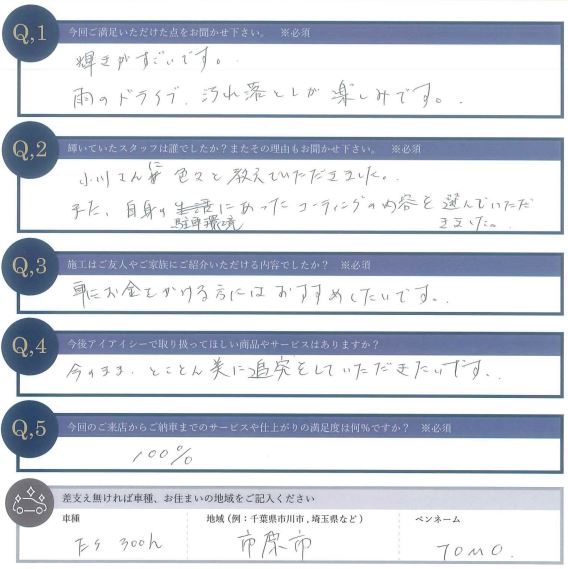 Q,1 今回ご満足いただけた点をお聞かせ下さい。 ※必須
輝きがすごいです。
雨のドライブ、汚れ落としが楽しみです。
Q,2 輝いていたスタッフは誰でしたか？またその理由もお聞かせ下さい。 ※必須
小川さんに色々と教えていただきました。
また、自身の駐車環境にあったコーティングの内容を選んでいただ
きました。
Q,3 施工はご友人やご家族にご紹介いただける内容でしたか？ ※必須
車にお金をかける方にはおすすめしたいです。
Q,4 今後アイアイシーで取り扱ってほしい商品やサービスはありますか？
今のまま、とことん美に追究をしていただきたいです。
Q,5 今回のご来店からご納車までのサービスや仕上がりの満足度は何％ですか？ ※必須
100%
差支え無ければ車種、お住まいの地域をご記入ください
車種 地域（例：千葉県市川市，埼玉県など） ペンネーム
ES 300h 市原市 TOMO.